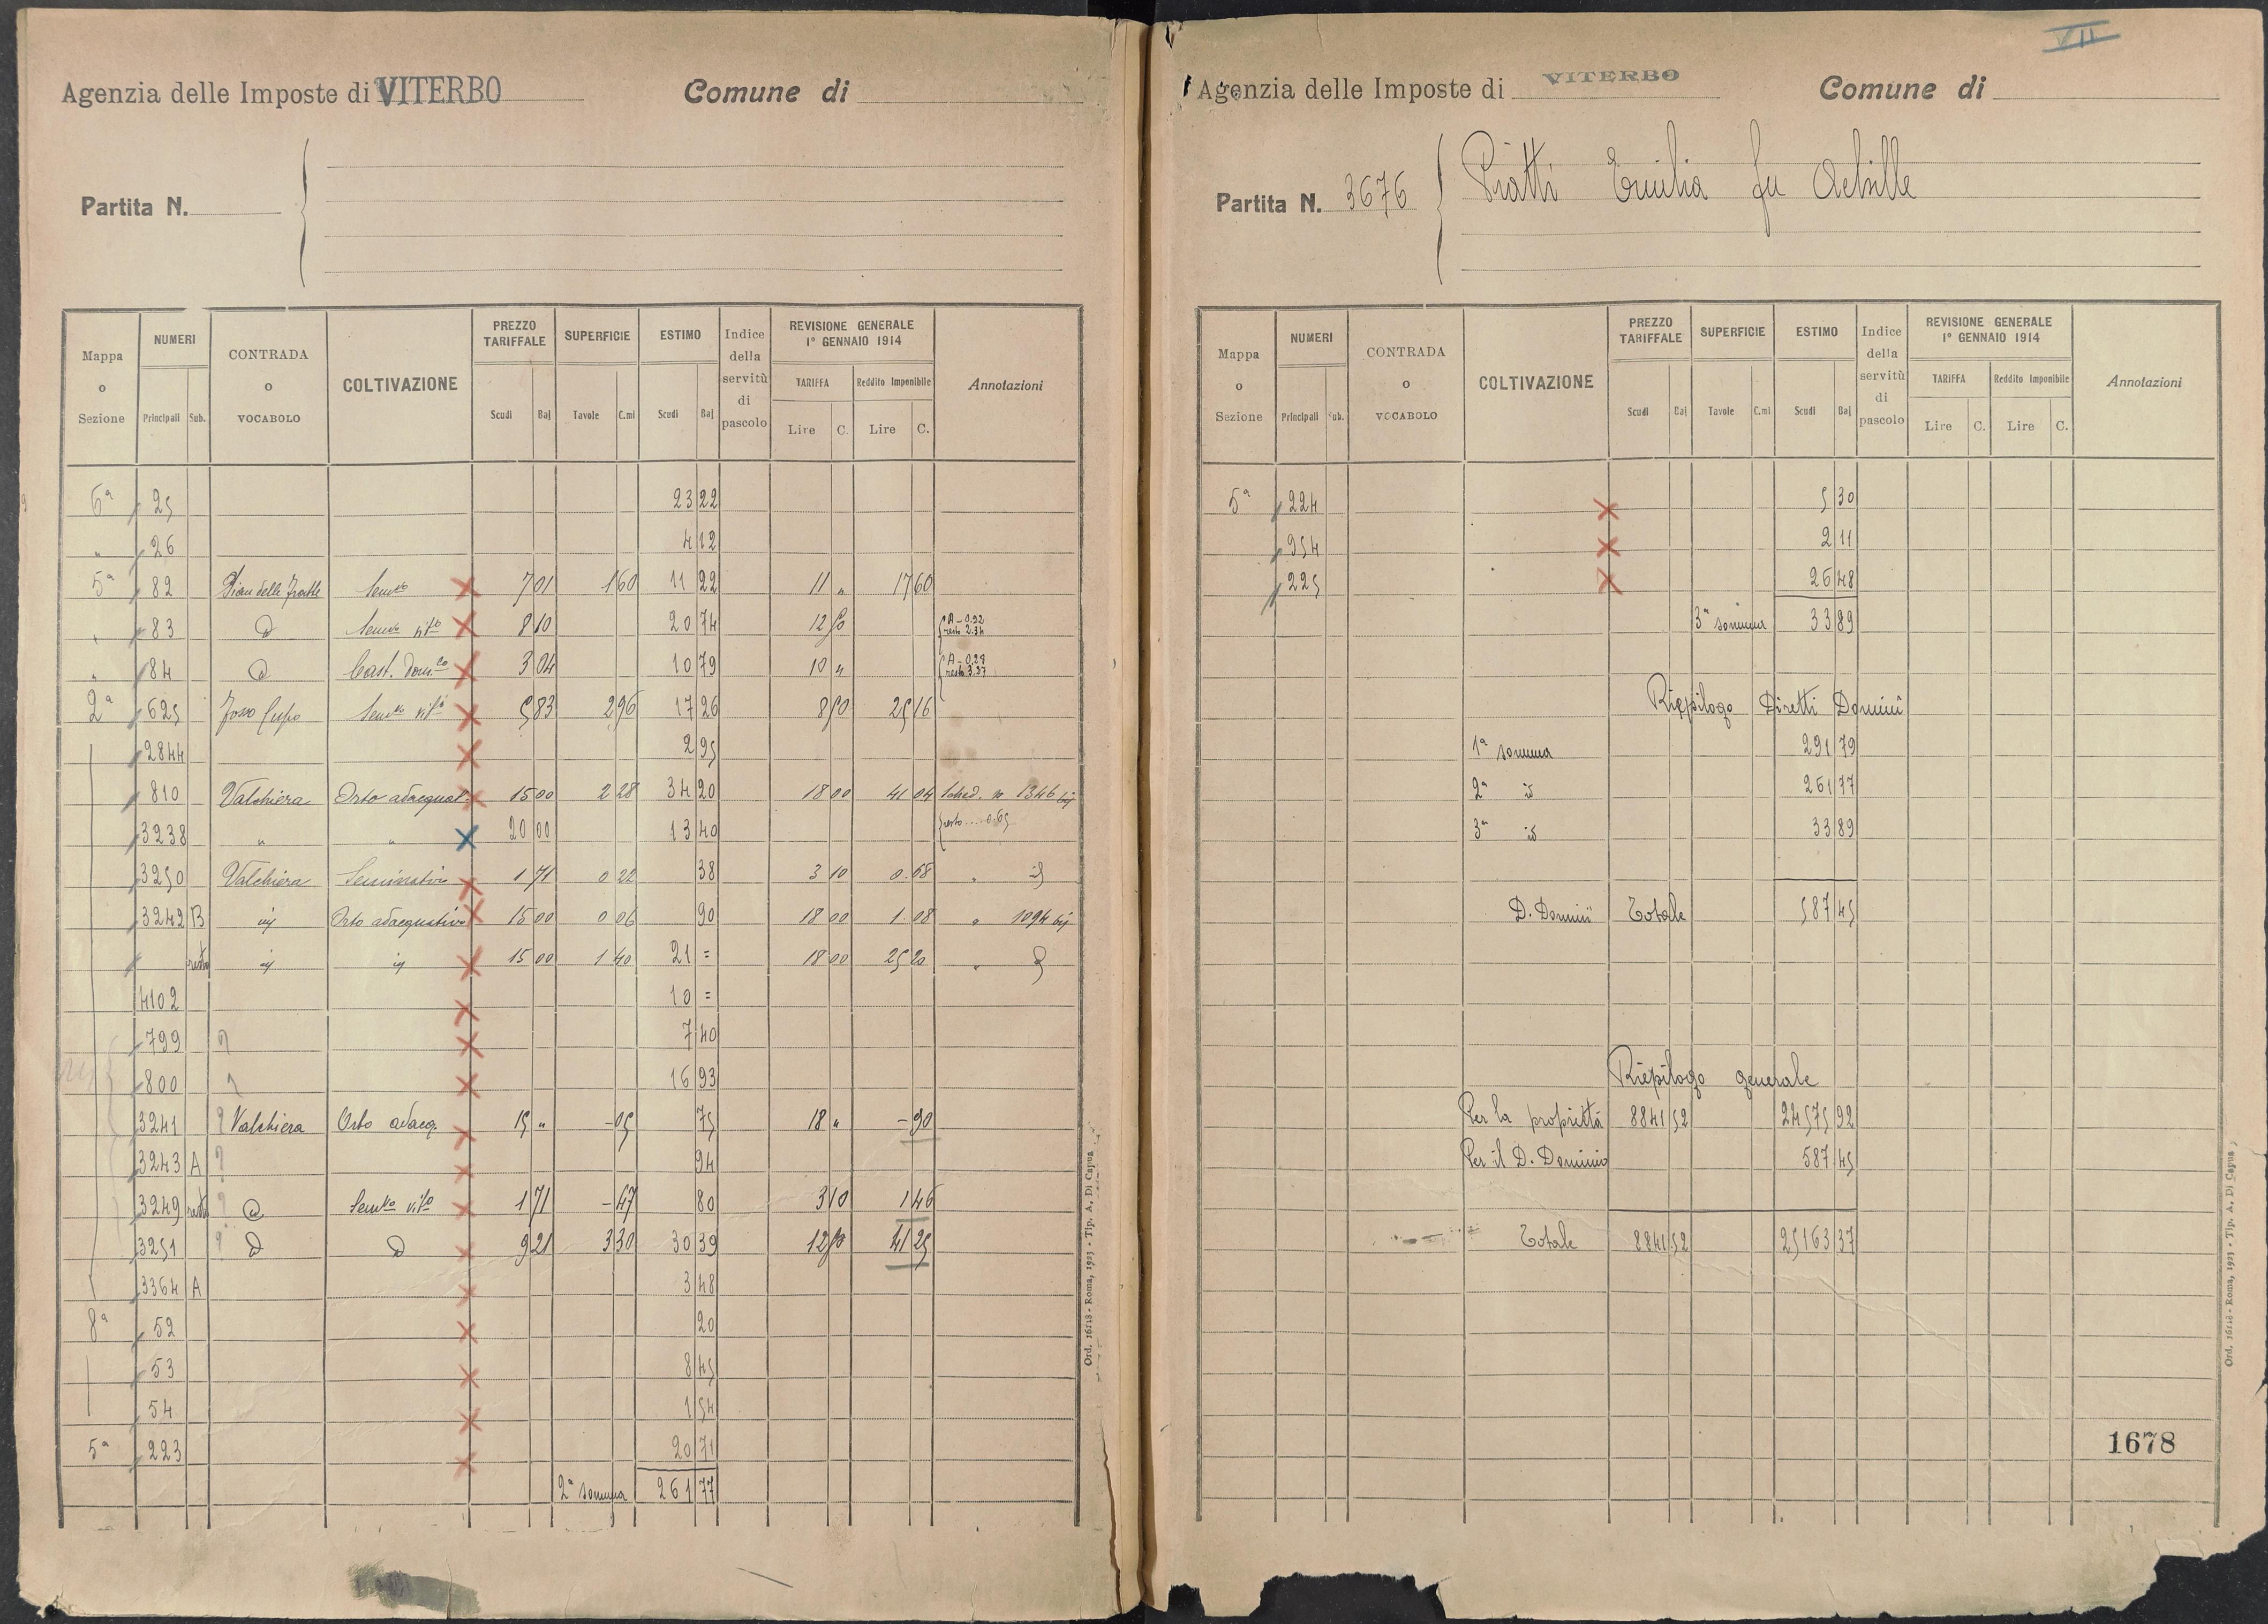 Agenzia delle Imposte di VITERBO Comune di
Partita N.
Mappa o Sezione NUMERI Principali Sub. CONTRADA o VOCABOLO COLTIVAZIONE PREZZO TARIFFALE Scudi Baj SUPERFICIE Tavole C.mi ESTIMO Scudi Baj Indice della servitù di pascolo REVISIONE GENERALE 1° GENNAIO 1914 TARIFFA Lire C. Reddito Imponibile Lire C. Annotazioni
6ª 25 23 22
" 26 4 12
5ª 82 Pian delle 7 01 1 60 11 22 11 " 17 60
" 83 8 10 20 74 12 50 A - 0.92 resto 2.34
" 84 Cast. dom.co 3 04 10 79 10 " A - 0.28 resto 3.27
2ª 625 5 83 2 96 17 26 8 50 25 16
2844 2 95
810 Valchiera Orto adacquat. 15 00 2 28 34 20 18 00 41 04 Sched. n 1346 bis
3238 " " 20 00 13 40 resto
3250 Valchiera Seminativo 1 71 0 22 38 3 10 0.68 "
3242 B Orto adacquativo 15 00 0 06 90 18 00 1.08 " 1094 bis
resto 15 00 1 40 21 = 18 00 25 20 "
4102 10 =
799 ? 7 40
800 ? 16 93
3241 ? Valchiera Orto adacq. 15 " - 05 75 18 " - 90
3243 A ? 94
3249 resto ? 1 71 - 47 80 3 10 1 46
3251 ? 9 21 3 30 30 39 12 50 41 25
3364 A 3 48
8ª 52 20
53 8 45
54 1 54
5ª 223 20 71
2ª somma 261 77
Ord. 16118 - Roma, 1923 - Tip. A. Di Capua
VII
Agenzia delle Imposte di VITERBO Comune di
Partita N. 3676 Piatti Emilia fu Achille
Mappa o Sezione NUMERI Principali Sub. CONTRADA o VOCABOLO COLTIVAZIONE PREZZO TARIFFALE Scudi Baj SUPERFICIE Tavole C.mi ESTIMO Scudi Baj Indice della servitù di pascolo REVISIONE GENERALE 1° GENNAIO 1914 TARIFFA Lire C. Reddito Imponibile Lire C. Annotazioni
5ª 224 5 30
954 2 11
225 26 48
3ª somma 33 89
Riepilogo Diretti Domini
1ª somma 291 79
2ª id 261 77
3ª id 33 89
D. Domini Totale 587 45
Riepilogo generale
Per la proprietà 8841 52 24575 92
Per il D. Dominio 587 45
Totale 8841 52 25163 37
1678
Ord. 16118 - Roma, 1923 - Tip. A. Di Capua